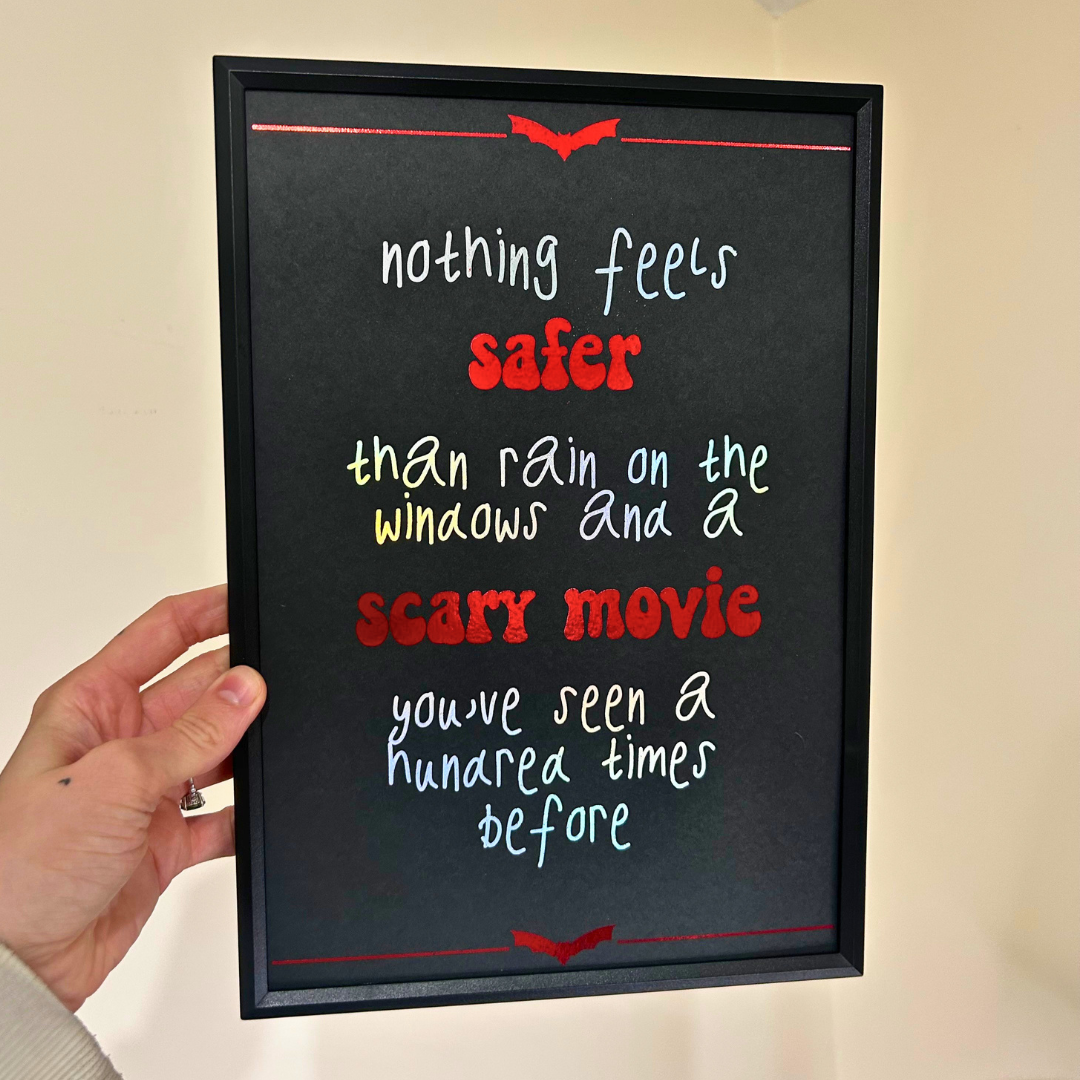 nothing feels
safer
than rain on the
windows and a
scary movie
you've seen a
hundred times
before